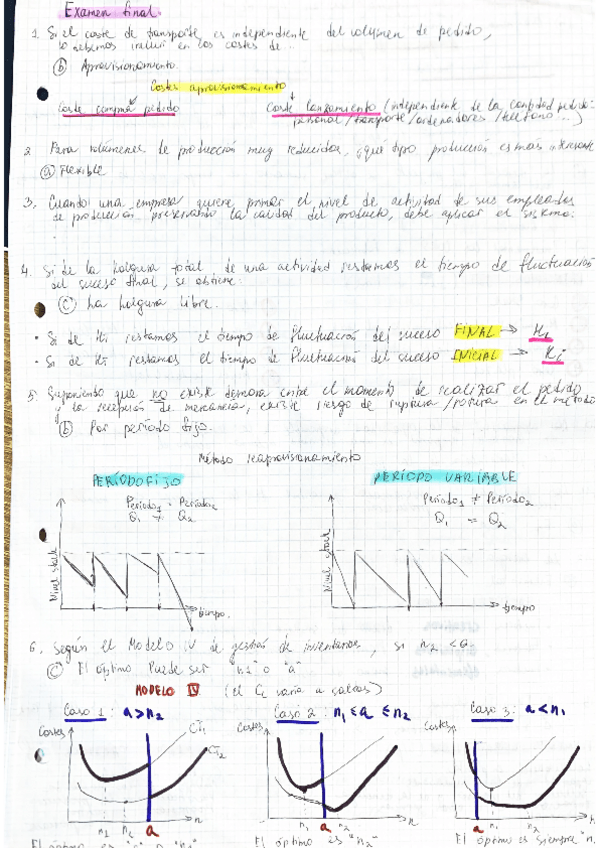 Examen final.
1. Si el coste de transporte, es independiente del volumen de pedido,
lo debemos incluir en los costes de...
(b) Aprovisionamiento.
Costes aprovisionamiento
Coste compra pedido Coste lanzamiento (independiente de la cantidad pedido:
personal/transporte/ordenadores/teléfono...)
2. Para volúmenes de producción muy reducidos, ¿qué tipo producción es más interesante
(a) Flexible
3. Cuando una empresa quiere primar el nivel de actividad de sus empleados
de producción preservando la calidad del producto, debe aplicar el sistema:
4. Si de la holgura total, de una actividad restamos el tiempo de fluctuación
del suceso final, se obtiene:
(c) La holgura libre.
• Si de Ht restamos el tiempo de fluctuación del suceso FINAL → HL
• Si de Ht restamos el tiempo de fluctuación del suceso INICIAL → Hi
5. Suponiendo que no existe demora entre el momento de realizar el pedido
y la recepción de mercancía, existe riesgo de ruptura/rotura en el método
(b) Por periodo fijo.
Método reaprovisionamiento
PERÍODO FIJO PERÍODO VARIABLE
Período1 = Período2 Período1 ≠ Período2
Q1 ≠ Q2 Q1 = Q2
Nivel stock Nivel stock
tiempo. tiempo
6. Según el Modelo IV de gestión de inventarios, si n2 < a.
(c) El óptimo Puede ser "n1" o "a"
MODELO IV (el Cc varía a saltos)
Caso 1: a>n2 Caso 2: n1 ≤ a ≤ n2 Caso 3: a<n1
Costes CT1 Costes Costes
CT2
n1 n2 n n1 n2 n n1 n
a a a
El óptimo es "a" o "n1" El óptimo es "n2" El óptimo es siempre "n